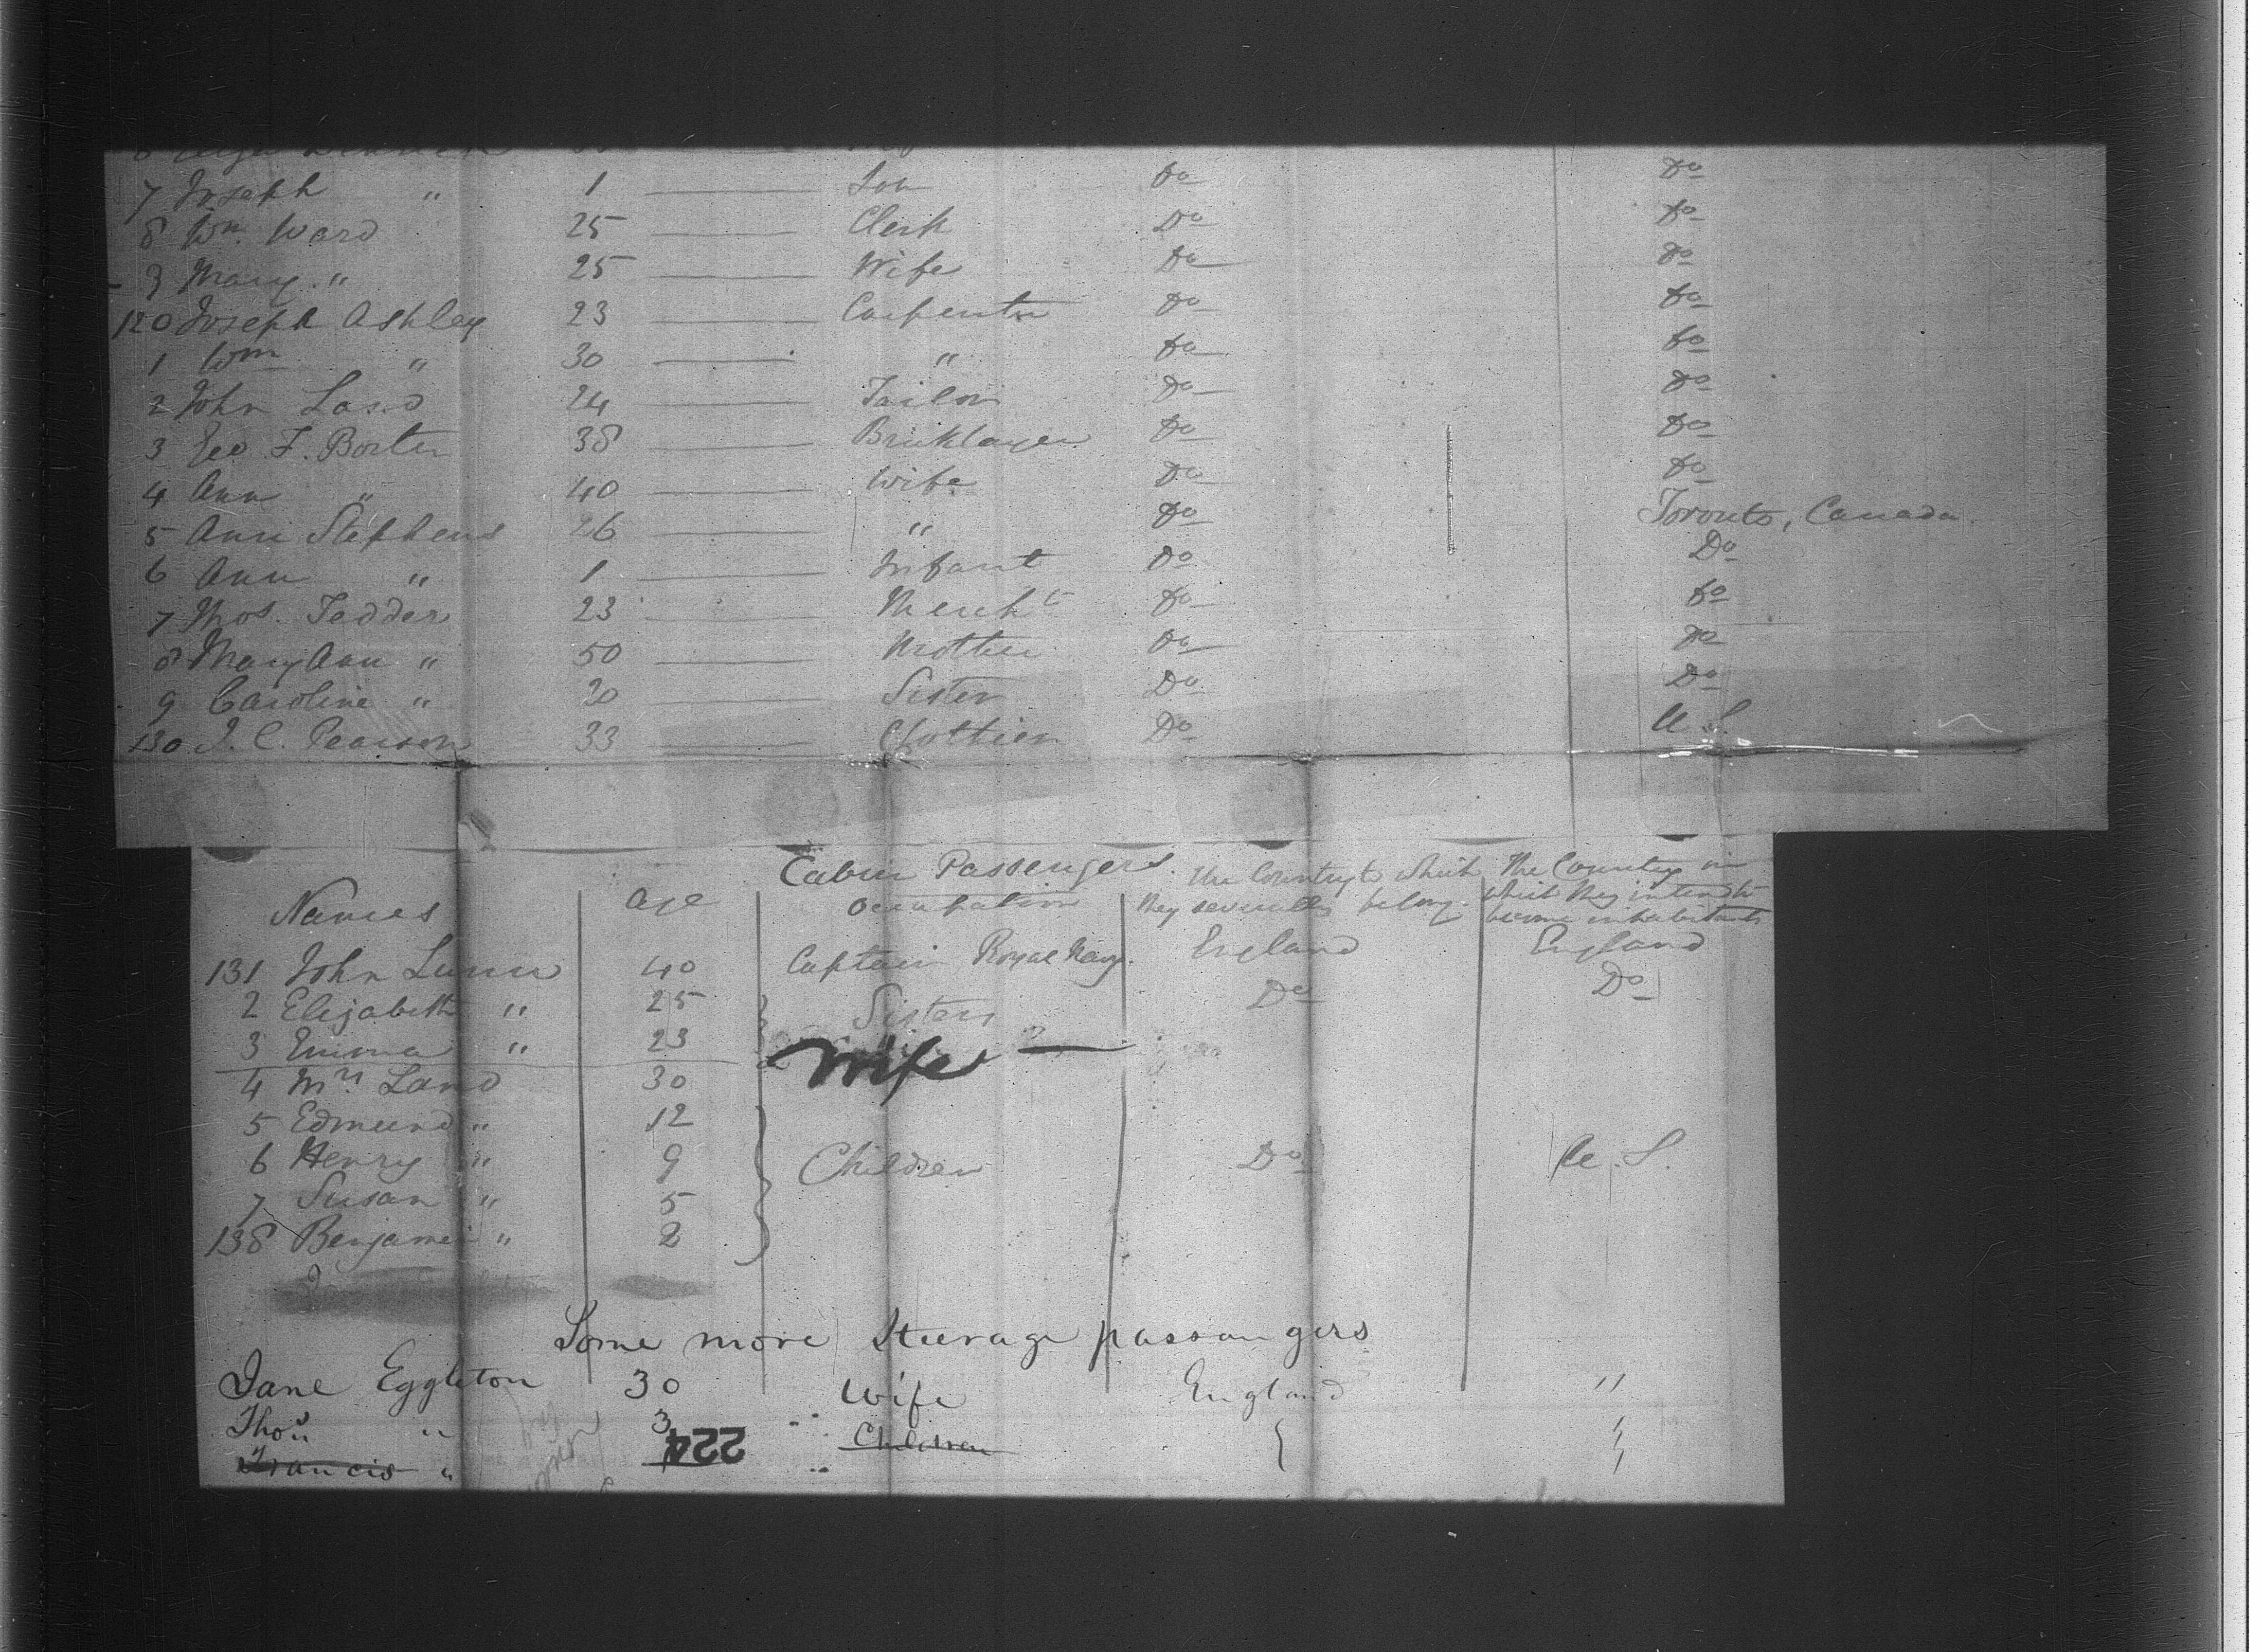 7 Joseph " 1 Son Do Do
8 Wm. Ward 25 Clerk Do Do
9 Mary " 25 Wife Do Do
120 Joseph Ashley 23 Carpenter Do Do
1 Wm " 30 " Do Do
2 John Land 24 Tailor Do Do
3 Geo F. Porter 38 Bricklayer Do Do
4 Ann " 40 Wife Do Do
5 Ann Stephens 26 " Do Toronto, Canada
6 Ann " 1 Infant Do Do
7 Thos. Tedder 23 Mercht Do Do
8 Mary Ann " 50 Mother Do Do
9 Caroline " 20 Sister Do Do
130 J. C. Pearson 33 Clothier Do U.S.
Cabin Passengers
Names Age Occupation The Country to which they severally belong. The Country in which they intend to become inhabitants
131 John Lunn 40 Captain Royal Navy. England England
2 Elizabeth " 25 Sisters Do Do
3 Emma " 23
4 Mrs Land 30 Wife
5 Edmund " 12
6 Henry " 9 Children Do U.S.
7 Susan " 5
138 Benjamin " 2
Some more Steerage passangers
Jane Eggleton 30 Wife England "
Thos " 3 Children "
Francis " "
224